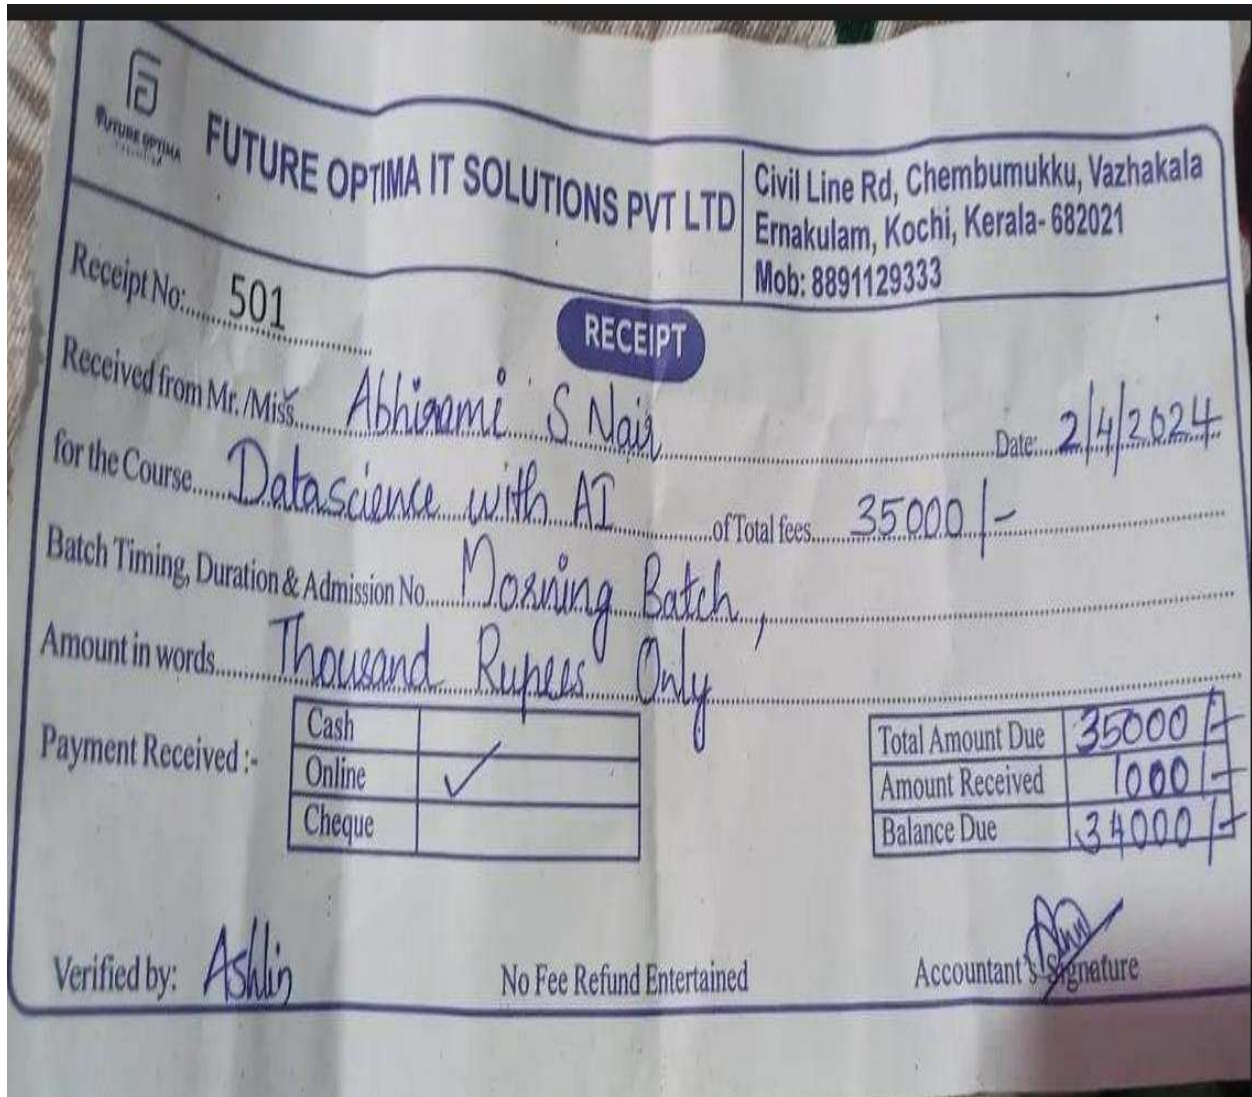 FUTURE OPTIMA
FUTURE OPTIMA IT SOLUTIONS PVT LTD
Civil Line Rd, Chembumukku, Vazhakala
Ernakulam, Kochi, Kerala- 682021
Mob: 8891129333
Receipt No:..... 501
RECEIPT
Received from Mr. /Miss.... Abhirami S Nair
Date:... 2/4/2024
for the Course..... Datascience with AI of Total fees..... 35000/-
Batch Timing, Duration & Admission No.... Morning Batch,
Amount in words....... Thousand Rupees Only
Payment Received :-
Cash
Online ✓
Cheque
Total Amount Due 35000/-
Amount Received 1000/-
Balance Due 34000/-
Verified by: Ashlin
No Fee Refund Entertained
Accountant's Signature